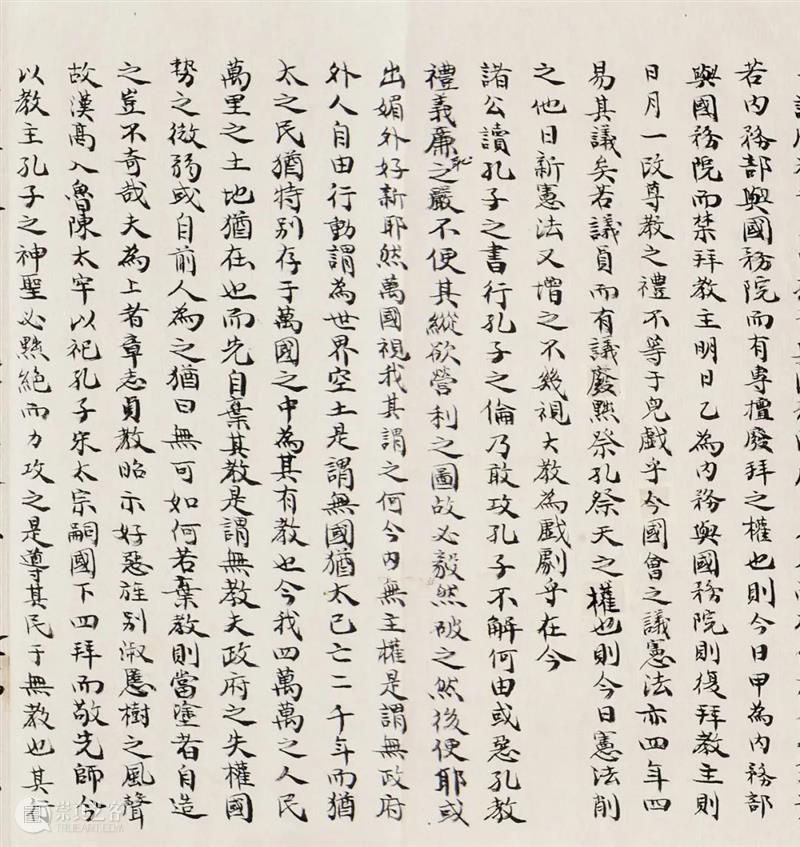 若内務部與國務院而有專擅廢拜之權也則今日甲為内務部
與國務院而禁拜教主明日乙為内務與國務院則復拜教主則
日月一改尊教之禮不等于兒戲乎今國會之議憲法亦四年四
易其議矣若議員而有議廢黜祭孔祭天之權也則今日憲法削
之他日新憲法又增之不幾視大教為戲劇乎在今
諸公讀孔子之書行孔子之倫乃敢攻孔子不解何由或惡孔教
禮義廉恥之嚴不便其縱欲營利之圖故必毅然破之然後便耶或
出媚外好新耶然萬國視我其謂之何今内無主權是謂無政府
外人自由行動謂為世界空土是謂無國猶太已亡二千年而猶
太之民猶特别存于萬國之中為其有教也今我四萬萬之人民
萬里之土地猶在也而先自棄其教是謂無教夫政府之失權國
勢之微弱或自前人為之猶曰無可如何若棄教則當塗者自造
之豈不奇哉夫為上者章志貞教昭示好惡旌别淑慝樹之風聲
故漢高入魯陳太牢以祀孔子宋太宗嗣國下四拜而敬先師今
以教主孔子之神聖必黜絕而力攻之是導其民于無教也其行
崇真艺客
TRUEART.COM